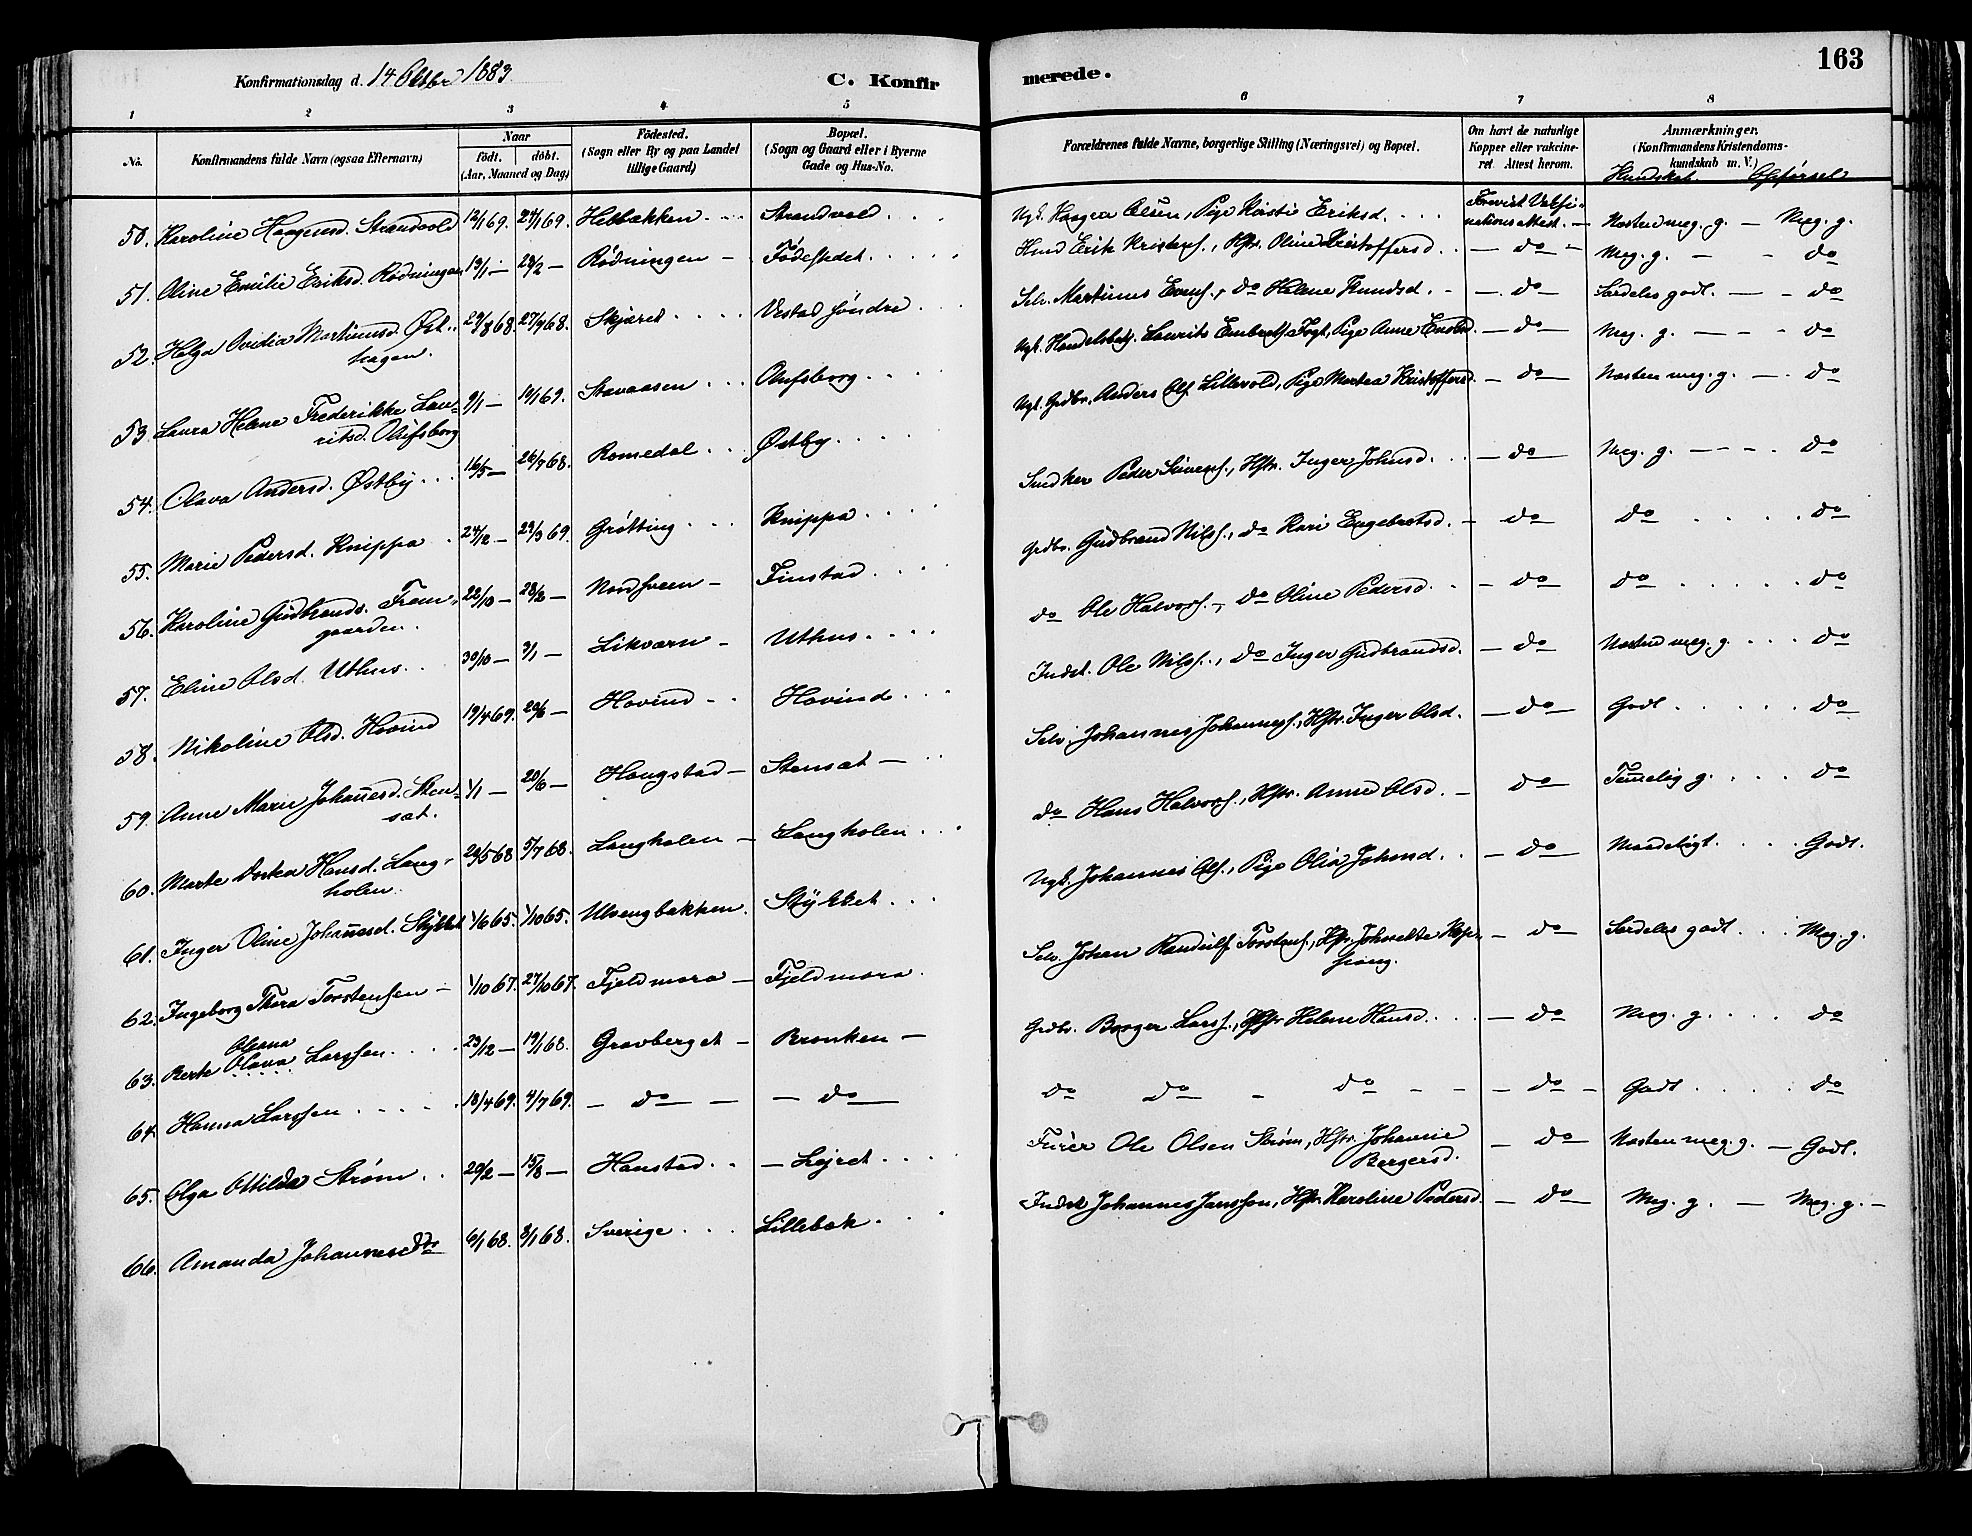 163
Konfirmationsdag d. 14 Oktbr 1883.
C. Konfirmerede.
1 2 3 4 5 6 7 8
No.
Konfirmandens fulde Navn (ogsaa Efternavn)
Naar
födt. döbt.
(Aar, Maaned og Dag)
Födested.
(Sogn eller By og paa Landet
tillige Gaard)
Bopæl.
(Sogn og Gaard eller i Byerne
Gade og Hus-No.
Forældrenes fulde Navne, borgerlige Stilling (Næringsvei) og Bopæl.
Om havt de naturlige
Kopper eller vakcine-
ret. Attest herom.
Anmærkninger.
(Konfirmandens Kristendoms-
kundskab m. V.)
Kundskab. Opførsel
50. Karoline Haagensd. Strandvold 12/1 69. 24/1 69. Hebækken Strandvold Ugk. Haagen Olsen, Pige Kirsti Eriksd. Forevist Vaksi-
nationsattest. Næsten meg. g. — Meg. g.
51. Oline Emilie Eriksd. Rødningen 19/1 — 28/2 — Rødningen — Fødestedet Hmd Erik Kristens., Hstr. Oline Kristoffersd. — do — Meg. g. — do
52. Helga Ovidia Martinusd. Øst-
hagen. 29/8 68. 27/9 68. Skjæret Vestad søndre Selv. Martinus Evens., do Helene Knudsd. — do — Særdeles godt. — do
53. Laura Helene Frederikke Lau-
ritsd. Olufsborg 9/1 — 19/1 69. Stavaasen Olufsborg Ugk. Handelsbetj. Laurits Embrets. Fogt, Pige Anne — do — Meg. g. — do
54. Olava Andersd. Østby 16/5 — 26/7 68. Romedal Østby Ugk. Grdbr. Anders Ols. Lillevold, Pige Martea Kristoffersd. — do — Næsten meg. g. — do
55. Marie Pedersd. Knippa 24/12 — 29/3 69. Grøtting Knippa Snedker Peder Simens., Hstr. Inger Johnsd. — do — Meg. g. — do
56. Karoline Gudbrands. Frem-
gaarden. 22/10 — 28/2 — Nordsveen — Finstad Grdbr. Gudbrand Nils., do Kari Engebretsd. — do do do
57. Eline Olsd. Uthus 30/10 — 3/1 — Likværn — Uthus do Ole Halvors., do Oline Pedersd. — do do do
58. Nikoline Olsd. Hovind 19/4 69. 20/6 — Hovind Hovind Indst. Ole Nils., do Inger Gudbrandsd. — do — Næsten meg. g. do
59. Anne Marie Johannesd. Sten-
sæt. 1/1 — 20/6 — Haugstad — Stensæt — Selv. Johannes Johannes., Hstr. Inger Olsd. — do — Godt do
60. Marte Dortea Hansd. Lang-
holen. 29/5 68 5/7 68. Langholen — Langholen do Hans Halvors., Hstr. Anne Olsd. — do Temmelig g. do
61. Inger Oline Johannesd. Stykket 1/6 65. 1/10 65. Ulvengbakken. Stykket Ugk. Johannes Ols., Pige Olia Johnsd. — do — Maadeligt. Godt.
62. Ingeborg Thora Torstensen — 1/10 67. 27/10 67. Fjeldmora — Fjeldmora Selv. Johan Randulf Torstens., Hstr. Johnette — do — Særdeles godt Meg. g.
63. Berte Olava Larssen
Oliana 29/12 — 19/1 68. Gravberget — Bronken — Grdbr. Borger Lars., Hstr Helene Hansd. — do Meg. g. do
64. Hanna Larssen 18/4 69. 4/7 69. — do — — do — do do — do — — do — Godt do
65. Olga Otilda Strøm 20/2 — 15/8 — Hanstad — Lejret Furér Ole Olsen Strøm, Hstr. Johanne
Bergersd. — do Næsten meg. g. — Godt.
66. Amanda Johannesdtr 6/1 68. 8/1 68. Sverige Lillebæk Indst Johannes Janssen, Hstr. Karoline Pedersd. — do — Meg. g. — Meg. g. —